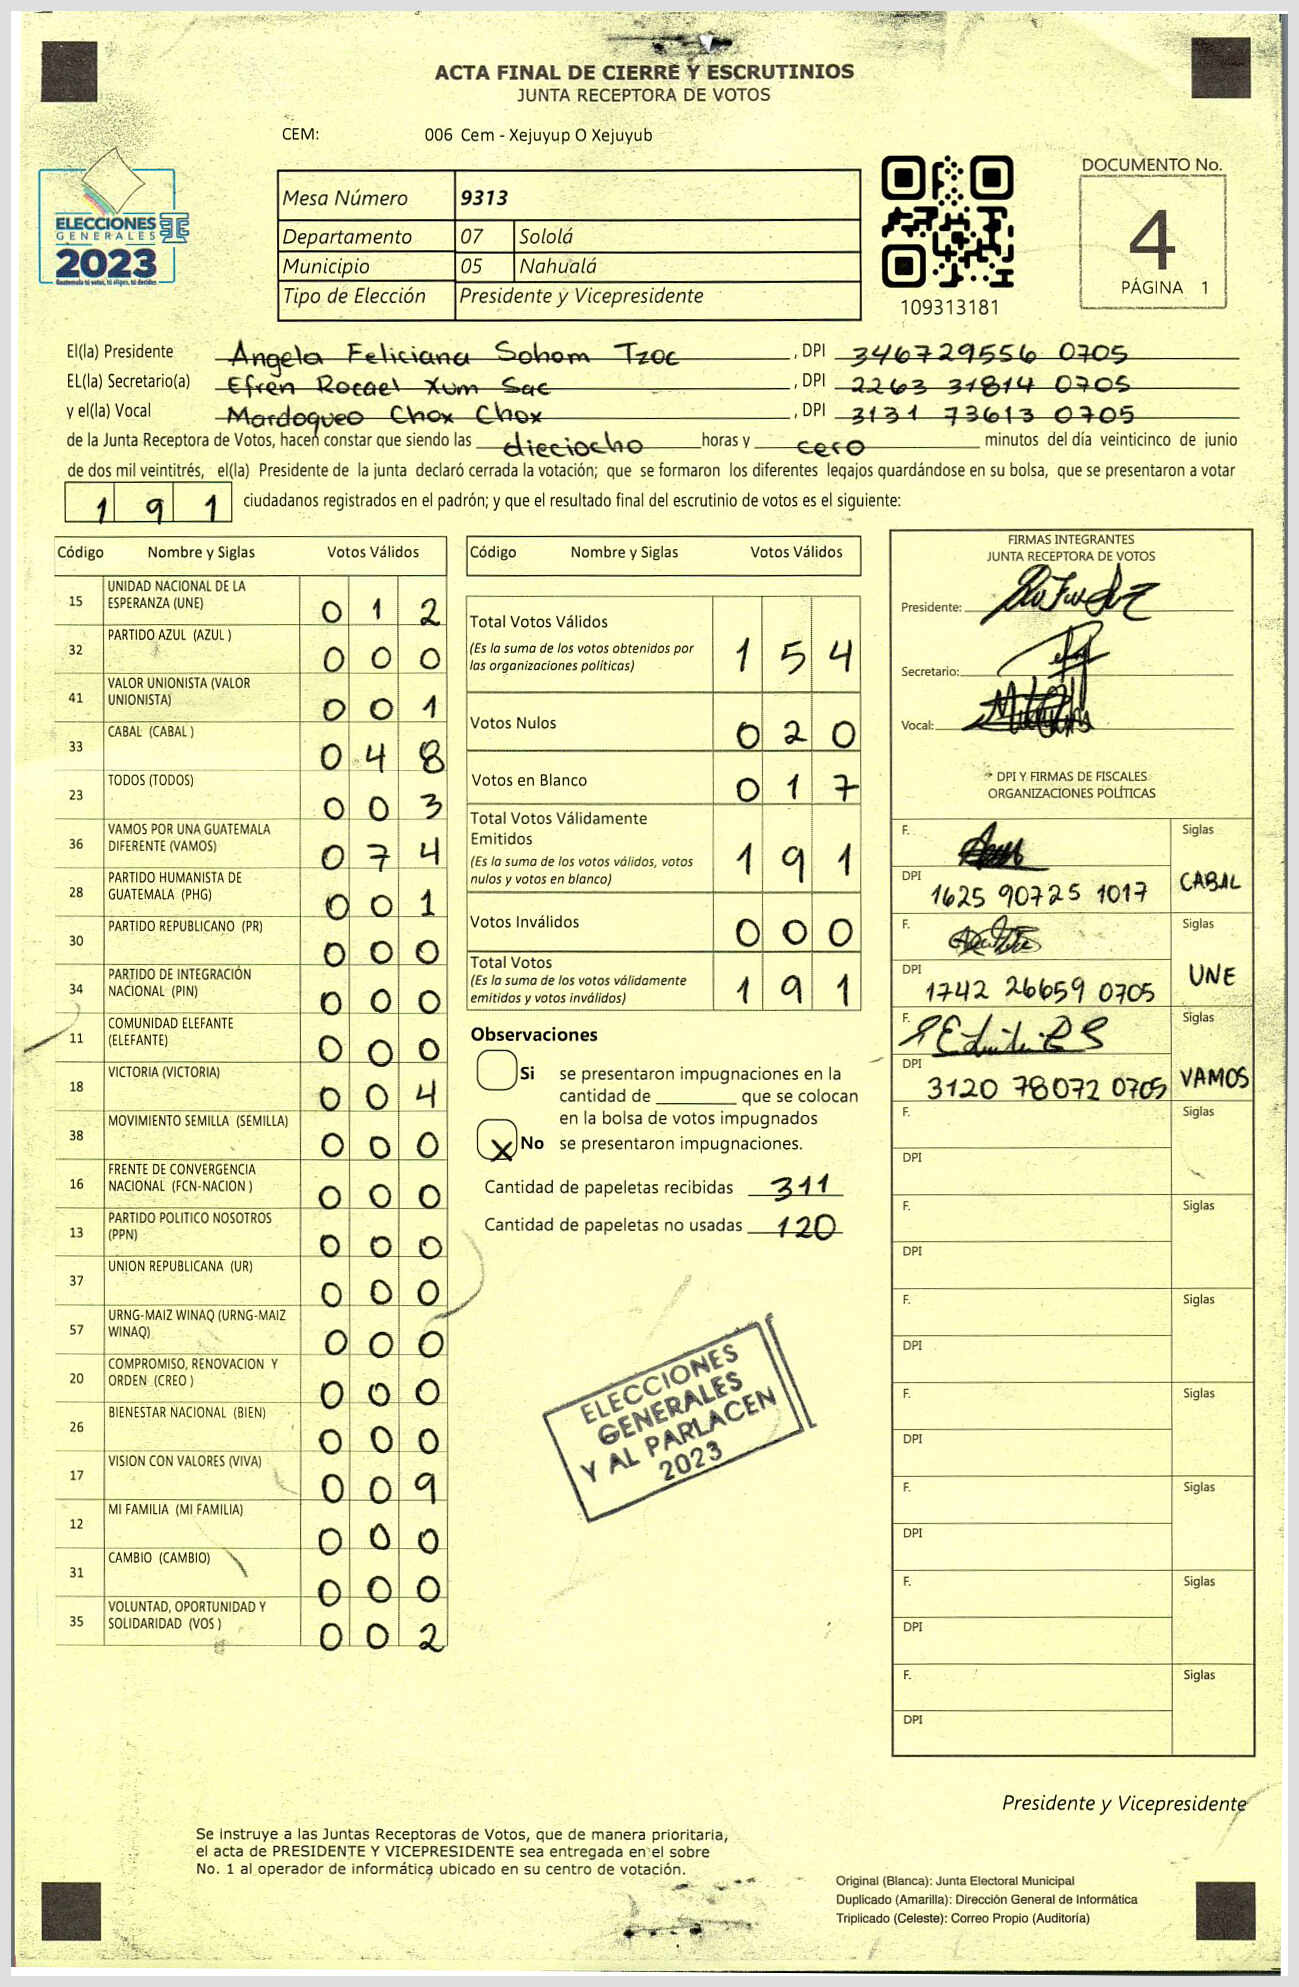 ACTA FINAL DE CIERRE Y ESCRUTINIOS
JUNTA RECEPTORA DE VOTOS
CEM: 006 Cem - Xejuyup O Xejuyub
ELECCIONES
GENERALES
2023
Guatemala tú votas, tú eliges, tú decides
Mesa Número 9313
Departamento 07 Sololá
Municipio 05 Nahualá
Tipo de Elección Presidente y Vicepresidente
109313181
DOCUMENTO No.
4
PÁGINA 1
El(la) Presidente Angela Feliciana Sohom Tzoc , DPI 346729556 0705
EL(la) Secretario(a) Efrén Rocael Xum Sac , DPI 2263 31814 0705
y el(la) Vocal Mardoqueo Chox Chox , DPI 3131 73613 0705
de la Junta Receptora de Votos, hacen constar que siendo las dieciocho horas y cero minutos del día veinticinco de junio
de dos mil veintitrés, el(la) Presidente de la junta declaró cerrada la votación; que se formaron los diferentes legajos guardándose en su bolsa, que se presentaron a votar
1 9 1 ciudadanos registrados en el padrón; y que el resultado final del escrutinio de votos es el siguiente:
Código Nombre y Siglas Votos Válidos
15 UNIDAD NACIONAL DE LA
ESPERANZA (UNE) 0 1 2
32 PARTIDO AZUL (AZUL ) 0 0 0
41 VALOR UNIONISTA (VALOR
UNIONISTA) 0 0 1
33 CABAL (CABAL ) 0 4 8
23 TODOS (TODOS) 0 0 3
36 VAMOS POR UNA GUATEMALA
DIFERENTE (VAMOS) 0 7 4
28 PARTIDO HUMANISTA DE
GUATEMALA (PHG) 0 0 1
30 PARTIDO REPUBLICANO (PR) 0 0 0
34 PARTIDO DE INTEGRACIÓN
NACIONAL (PIN) 0 0 0
11 COMUNIDAD ELEFANTE
(ELEFANTE) 0 0 0
18 VICTORIA (VICTORIA) 0 0 4
38 MOVIMIENTO SEMILLA (SEMILLA) 0 0 0
16 FRENTE DE CONVERGENCIA
NACIONAL (FCN-NACION ) 0 0 0
13 PARTIDO POLITICO NOSOTROS
(PPN) 0 0 0
37 UNION REPUBLICANA (UR) 0 0 0
57 URNG-MAIZ WINAQ (URNG-MAIZ
WINAQ) 0 0 0
20 COMPROMISO, RENOVACION Y
ORDEN (CREO ) 0 0 0
26 BIENESTAR NACIONAL (BIEN) 0 0 0
17 VISION CON VALORES (VIVA) 0 0 9
12 MI FAMILIA (MI FAMILIA) 0 0 0
31 CAMBIO (CAMBIO) 0 0 0
35 VOLUNTAD, OPORTUNIDAD Y
SOLIDARIDAD (VOS ) 0 0 2
Código Nombre y Siglas Votos Válidos
Total Votos Válidos
(Es la suma de los votos obtenidos por
las organizaciones políticas) 1 5 4
Votos Nulos 0 2 0
Votos en Blanco 0 1 7
Total Votos Válidamente
Emitidos
(Es la suma de los votos válidos, votos
nulos y votos en blanco) 1 9 1
Votos Inválidos 0 0 0
Total Votos
(Es la suma de los votos válidamente
emitidos y votos inválidos) 1 9 1
Observaciones
Si se presentaron impugnaciones en la
cantidad de ________ que se colocan
en la bolsa de votos impugnados
X No se presentaron impugnaciones.
Cantidad de papeletas recibidas 311
Cantidad de papeletas no usadas 120
ELECCIONES
GENERALES
Y AL PARLACEN
2023
FIRMAS INTEGRANTES
JUNTA RECEPTORA DE VOTOS
Presidente:
Secretario:
Vocal:
DPI Y FIRMAS DE FISCALES
ORGANIZACIONES POLÍTICAS
F. Siglas
DPI 1625 90725 1017 CABAL
F. Siglas
DPI 1742 26659 0705 UNE
F. Siglas
DPI 3120 78072 0705 VAMOS
F. Siglas
DPI
F. Siglas
DPI
F. Siglas
DPI
F. Siglas
DPI
F. Siglas
DPI
F. Siglas
DPI
F. Siglas
DPI
Presidente y Vicepresidente
Se instruye a las Juntas Receptoras de Votos, que de manera prioritaria,
el acta de PRESIDENTE Y VICEPRESIDENTE sea entregada en el sobre
No. 1 al operador de informática ubicado en su centro de votación.
Original (Blanca): Junta Electoral Municipal
Duplicado (Amarilla): Dirección General de Informática
Triplicado (Celeste): Correo Propio (Auditoría)